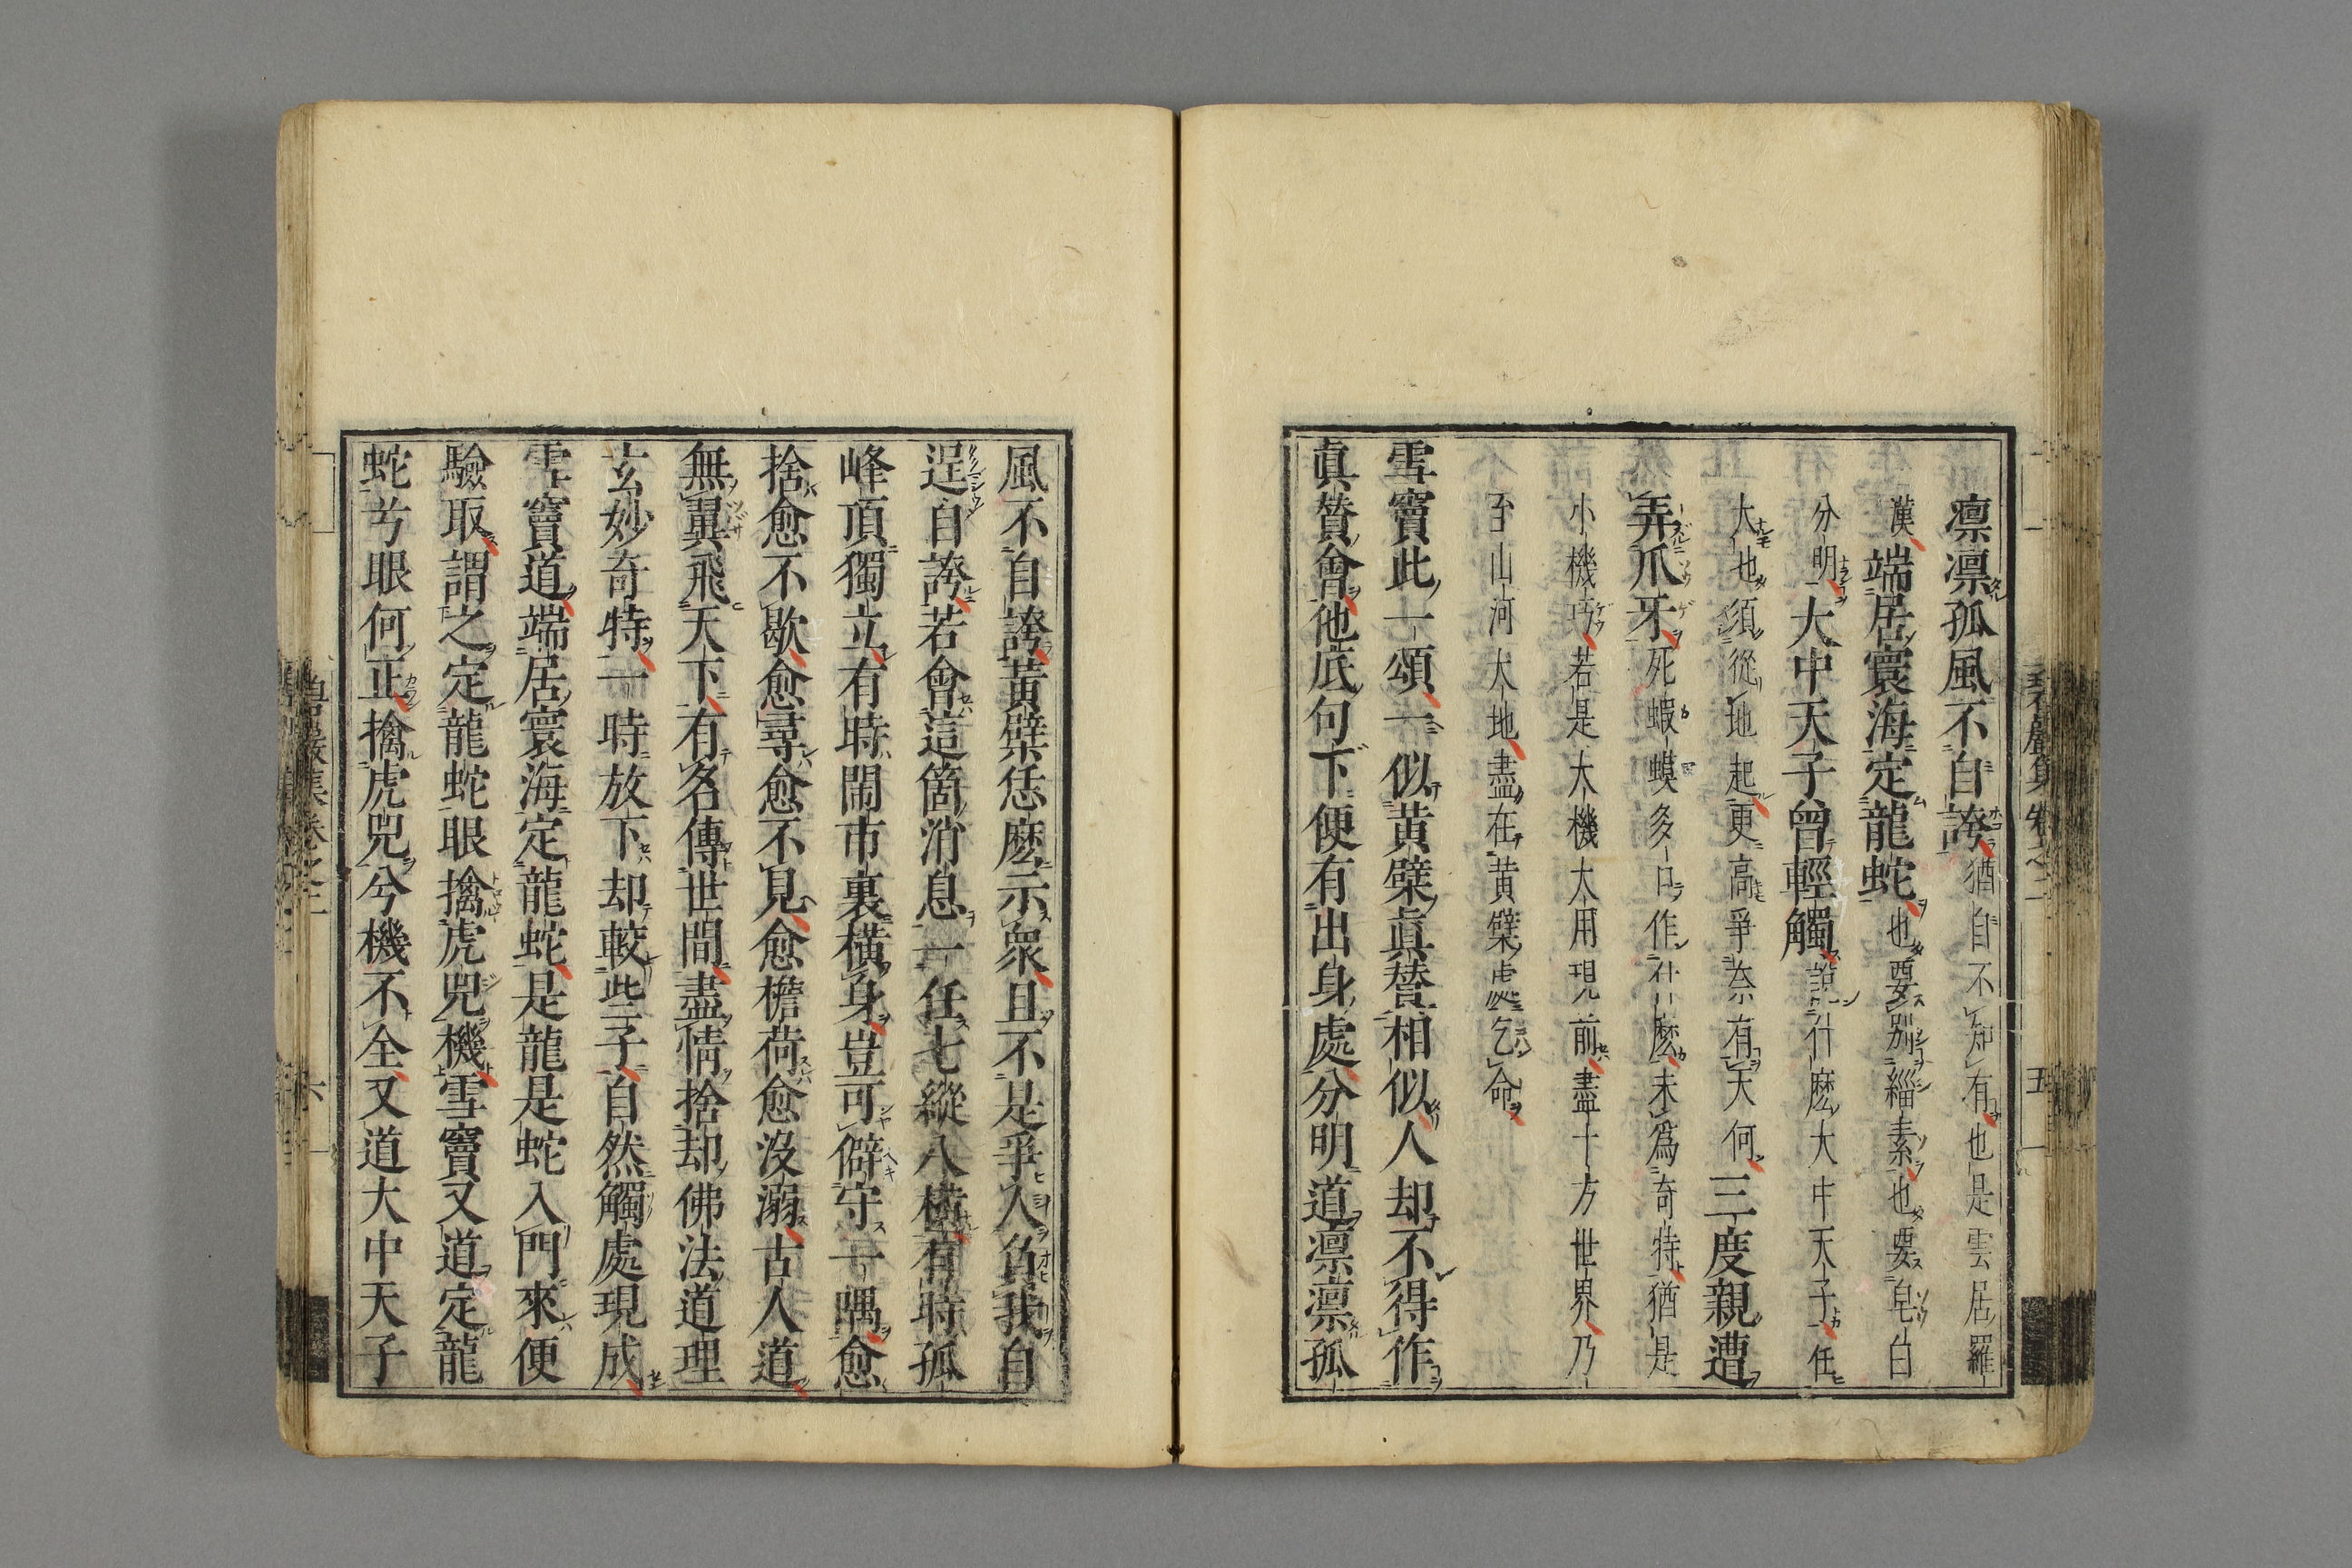 凛凛孤風不自誇猶自不知有也是雲居羅
漢端居寰海定龍蛇也要別緇素也要皂白
分明大中天子曾輕觸說什麼大中天子任
大也須從地起更高爭奈有天何三度親遭
弄爪牙死蝦蟆多口作什麼未爲奇特猶是
小機巧若是大機大用現前盡十方世界乃
至山河大地盡在黃檗處乞命
雪竇此一頌一似黃檗眞贊相似人却不得作
眞贊會他底句下便有出身處分明道凛凛孤
風不自誇黃檗恁麽示衆且不是爭人負我自
逞自誇若會這箇消息一任七縱八橫有時孤
峰頂獨立有時閙市裏橫身豈可僻守一隅愈
捨愈不歇愈尋愈不見愈檐荷愈沒溺古人道
無翼飛天下有名傳世間盡情捨却佛法道理
玄妙奇特一時放下却較些子自然觸處現成
雪竇道端居寰海定龍蛇是龍是蛇入門來便
驗取謂之定龍蛇眼擒虎兕機雪竇又道定龍
蛇兮眼何正擒虎兕兮機不全又道大中天子